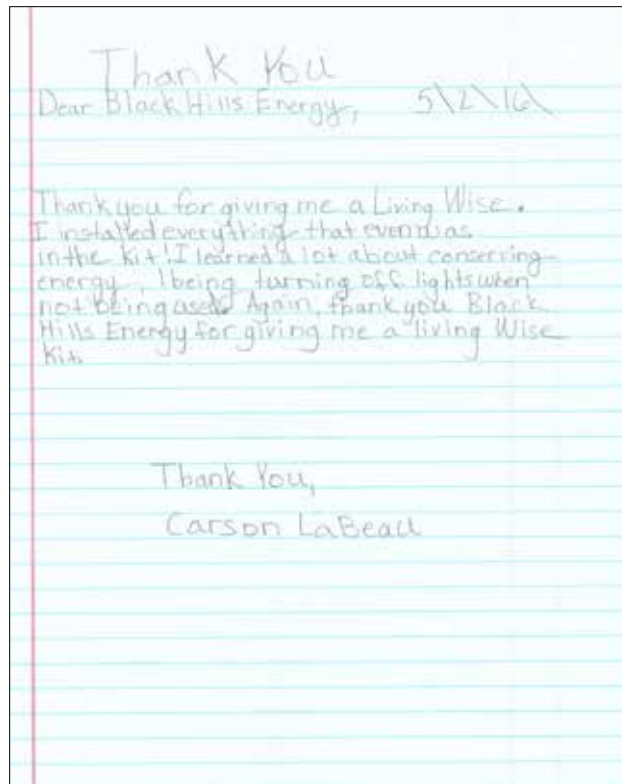 Thank You
Dear Black Hills Energy, 5\2\16\
Thank you for giving me a Living Wise.
I installed everything that even was
in the kit! I learned a lot about conserving
energy, 1 being turning off lights when
not being used. Again, thank you Black
Hills Energy for giving me a living Wise
Kit.
Thank You,
Carson LaBeau